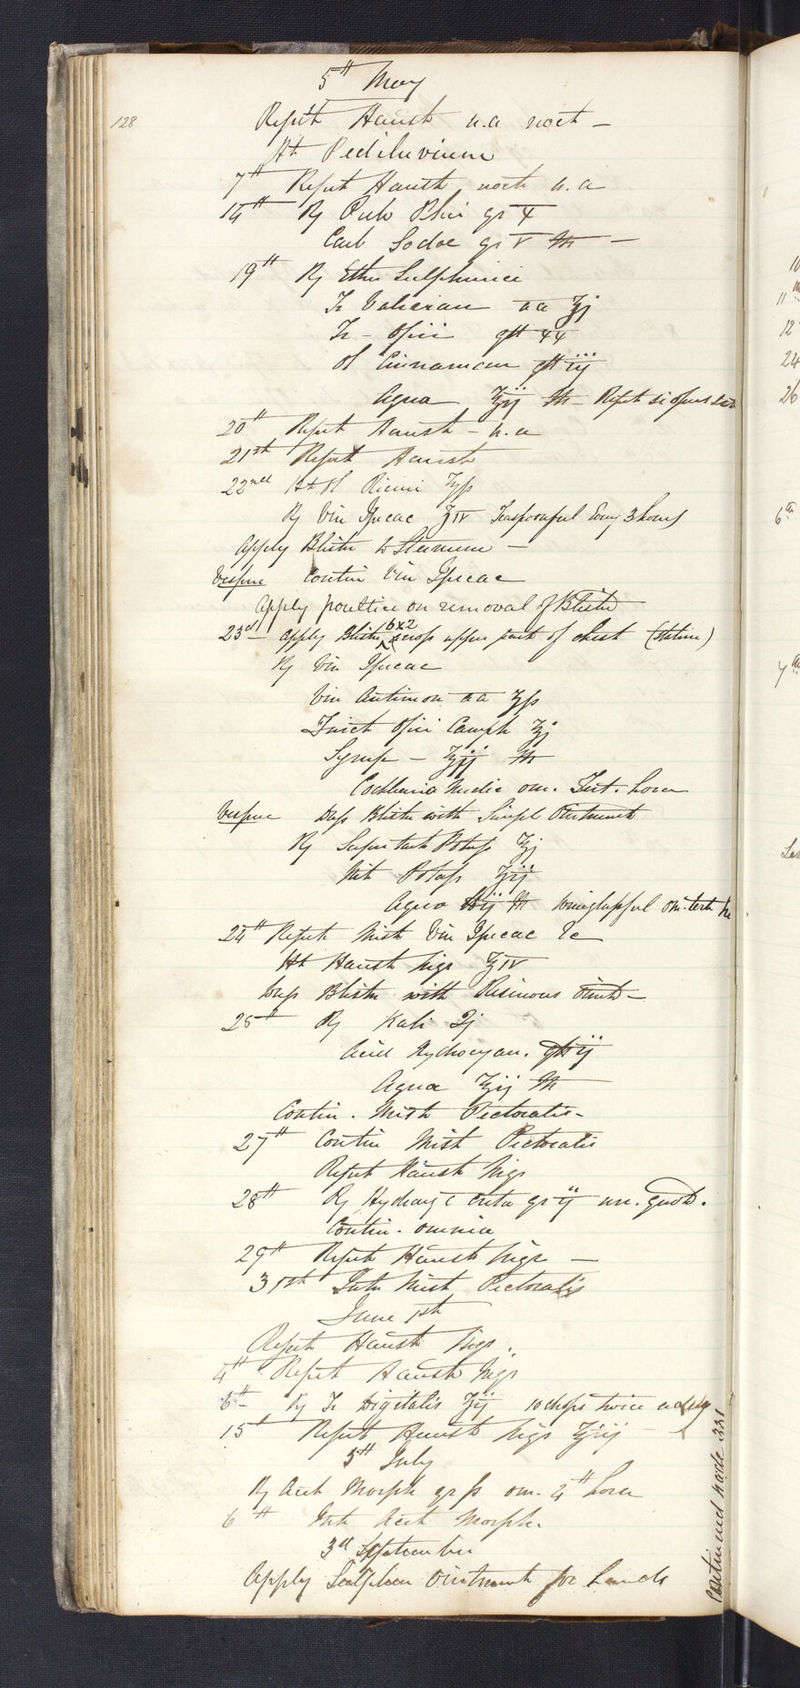 5th May
128
Repet Haust u.a noct –
Ht Pediluvium
7th Repet Haust noct u.a
14th ℞ Pulv Rhei gr X
Carb Sodae gr V M –
19th ℞ Ether Sulphurici
Tr Valerian aa ʒj
Tr – Opii gtt XX
Ol Cinnamom gtt iij
Aqua ℥ij M – Repet si opus sit
20th Repet Haust – u.a
21st Repet Haust
22nd Ht Ol Ricini ℥ſs
℞ Vin Ipecac ℥IV Teaspoonful Every 3 hours
Apply Blister to Sternum –
Vespere Contin Vin Ipecac
Apply poultice on removal of Blister
23d – Apply Blister 6x2 across upper part of chest (statim)
℞ Vin Ipecac
Vin Antimon aa ℥ſs
Tinct Opii Camph ʒj
Syrup – ℥ij M
Cochlearia Media om. Tert. hora
Vespere Dress Blister with Simpl Ointment
℞ Super tart Potass ʒj
Nit Potass ʒij
Aqua ij M Wineglassful om. tert
24th Repet Mist Vin Ipecac &c
Ht Haust Nigr ℥IV
Dress Blister with Resinous Oint –
25th ℞ Kali ʒj
Acid Hydrocyan. gtt ij
Aqua ℥ij M
Contin. Mist Pectoralis –
27th Contin Mist Pectoralis
Repet Haust Nigr
28th ℞ Hydrarg c Creta gr ij quotd.
Contin. omnia
29th Repet Haust Nigr –
31st Mist Pectoralis
June 1st
Repet Haust Nigr.
4th Repet Haust Nigr
6th – ℞ Tr Digitalis ʒij 10 drops twice a day
15th Repet Haust Nigr ℥iij –
5th July
℞ Acet Morph gr ſs om. 4th hora
6th Acet Morph.
3d September
Apply Sulphur Ointment for hands
Continued 331